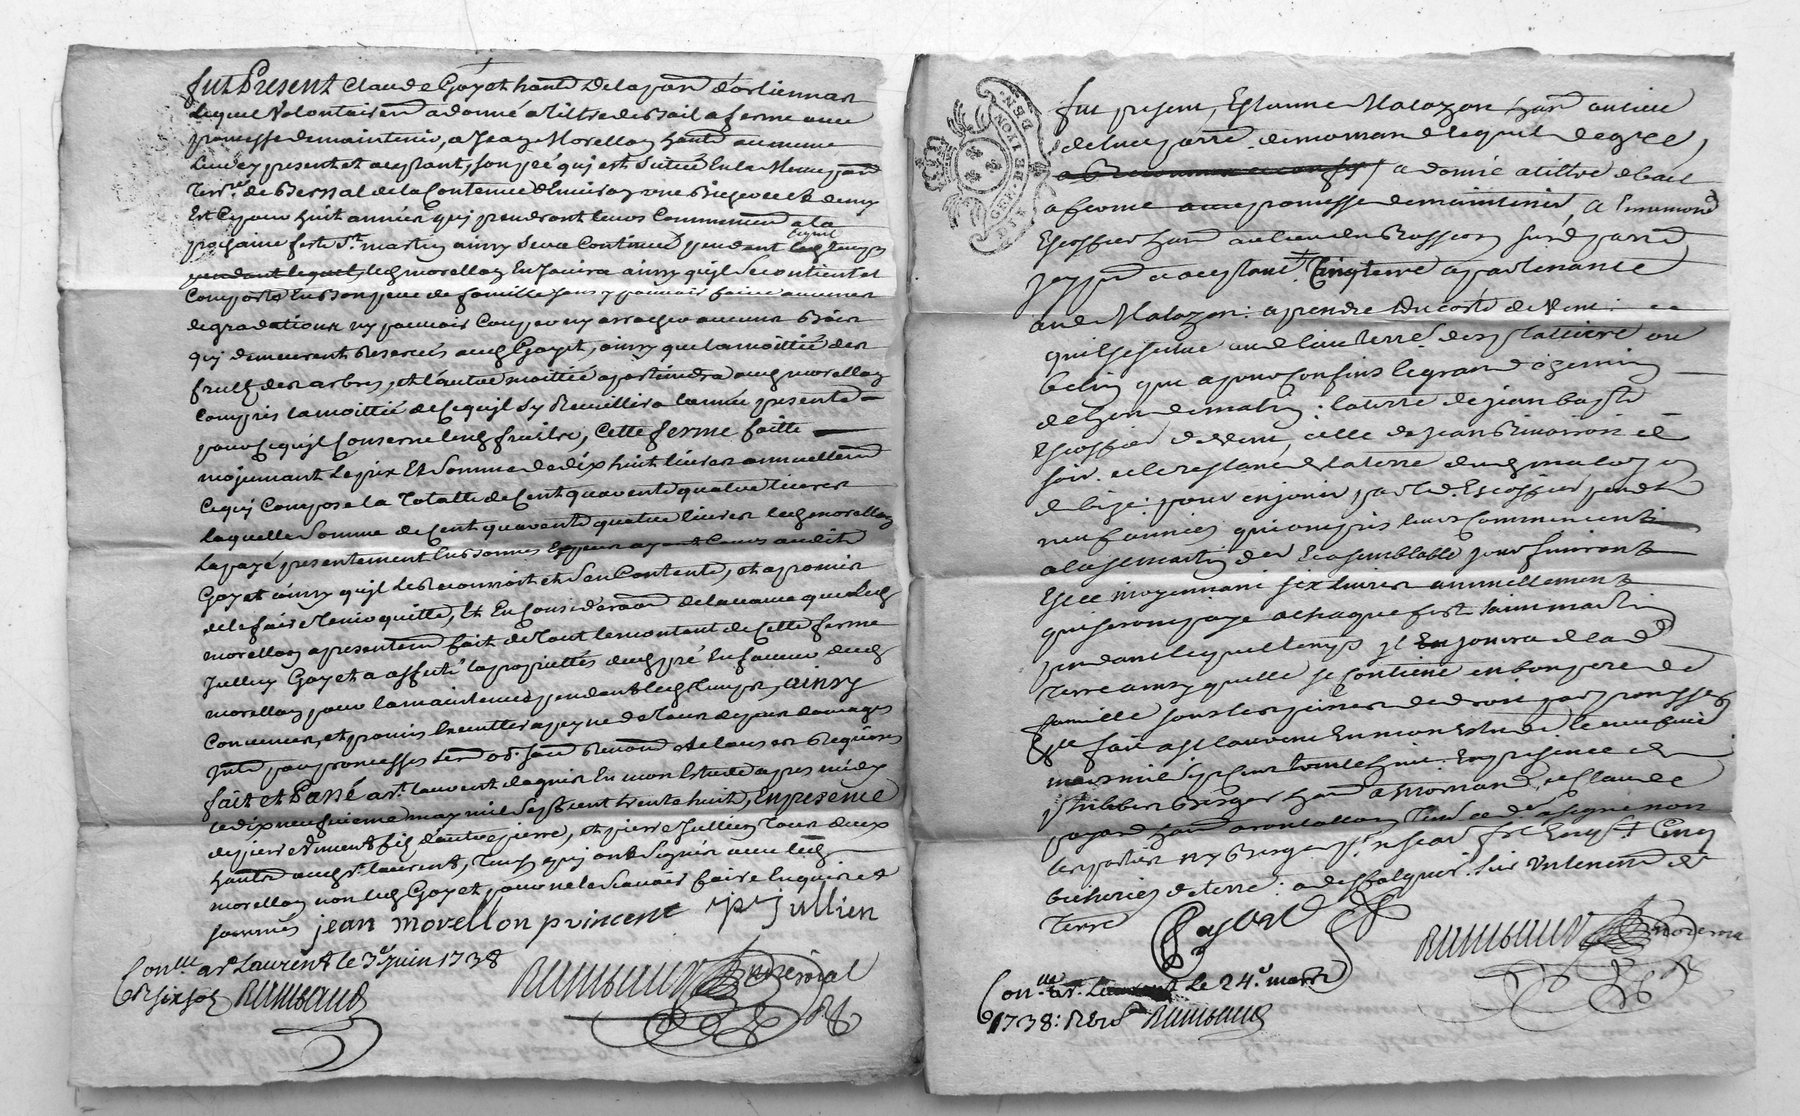 fut Present Claude Goyet habt de la par d'orliennas
lequel volontairemt a donné a tiltre de Bail a ferme avec
promesse de maintenir, a Jean Morellon habt au mesme
Lieu cy present et aceptant, son pré qui est situé En la Mesme par
Terre de Bernal de la Contenue d'Environ une Bicherée & demy
Et Ce pour huit années quy prendront leurs Commencemt a la
prochaine feste St martin ainsy sera Continué pendant led temps
pendant lequel led morellon En Jouira ainsy quil Se contient et
Comporte En Bon pere de famille sans y pouvoir faire aucunes
degradations ny pouvoir Couper ny arracher aucuns Bois
quy demeurent Reservés aud Goyet, ainsy que la moittié des
fruits des arbres, et l'autre moittié apartiendra aud morellon
Compris la moittié de Ce quil Sy Recuillira lannée presente
pour Ce quil Conserne lesd fruits, Cette ferme faitte
moyennant le prix Et Somme de dix huit livres annuellemt
Ce quy Compose la Totalle de Cent quarente quatre livres
laquelle Somme de Cent quarente quatre livres led morellon
la payé presentement En Bonnes Especes ayant Cours audit
Goyet ainsy quil le Reconnoit et S'en Contente, et a promis
de le faire tenir quitte, Et En Consideration de lavance que led
morellon a presentemt fait de tout le montant de Cette ferme
Jcelluy Goyet a affecté la proprietés dud pré En faveur dud
morellon pour la maintenue pendant led temps, ainsy
Convenu, et promis Executter a peyne de tous depens domages
Jnts par promesses sermt obr. soum Renon & Clauses Requises
fait et Passé a St laurent dagnis En mon Estude apres midy
le dix neufvieme may mil Sept Cent trente huit, en presence
de pierre Vincent fils d'autre pierre, et pierre Jullien Tous deux
habts aud St laurent, Tesm quy ont Signés avec led
morellon non led Goyet pour ne le Scavoir faire Enquis et
sommés jean morellon p vincent p Jullien
Conllé a St Laurent le 3e juin 1738
R six sols Rimbaud
Rimbaud nore royal
fut present, Estienne Malozon habt au lieu
de lucy parre. de mornand lequel de gré
a donné a tiltre de bail
a ferme avec promesse de maintenir, a Enemond
Escoffier habt au lieu du Rosseon susd parre
Jcy pnt et aceptant Cinq terre apartenante
aud Malozon: a prendre du coste de Vent:
quil se seme aud lieu terre des platiere ou
belin que a pour Confins le grand chemin
de Lyon de matin: la terre de jean bapte
Escoffier de Vent, celle de jean Rimoiron de
soir. et le restant de la terre dud malozon
de bize: pour en jouir par led. Escoffier pendt
neuf années qui ont pris leurs Commencemt
a la st martin der Et a semblable jour finiront
Et Ce moyennant six livres annuellement
qui seront payé a chaque fest saint martin
pendant lequel temps il En jouira de lad
terre ainsy quelle se Contient en bon pere de
famille sous les peines de droit par promesses
Et Ce fait a st laurent En mon Estude le neufvie
mars mil sept Cent trente huit. En presence de
philibert Berger habt a Mornand, et Claude
payard habt a rontallon Tesm ce dr. a signe non
les parties ny Berger pr ne scar fre Enqs & Cinq
bicherées de terre: a desfalquer. Sur Un tenemt de
Terre
payard
Rimbaud nore royal
Conllé a St Laurent le 24e mars
1738: R Rimbaud
GEN. DE LION